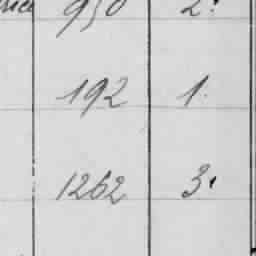 950 2.
192 1.
1262 3.